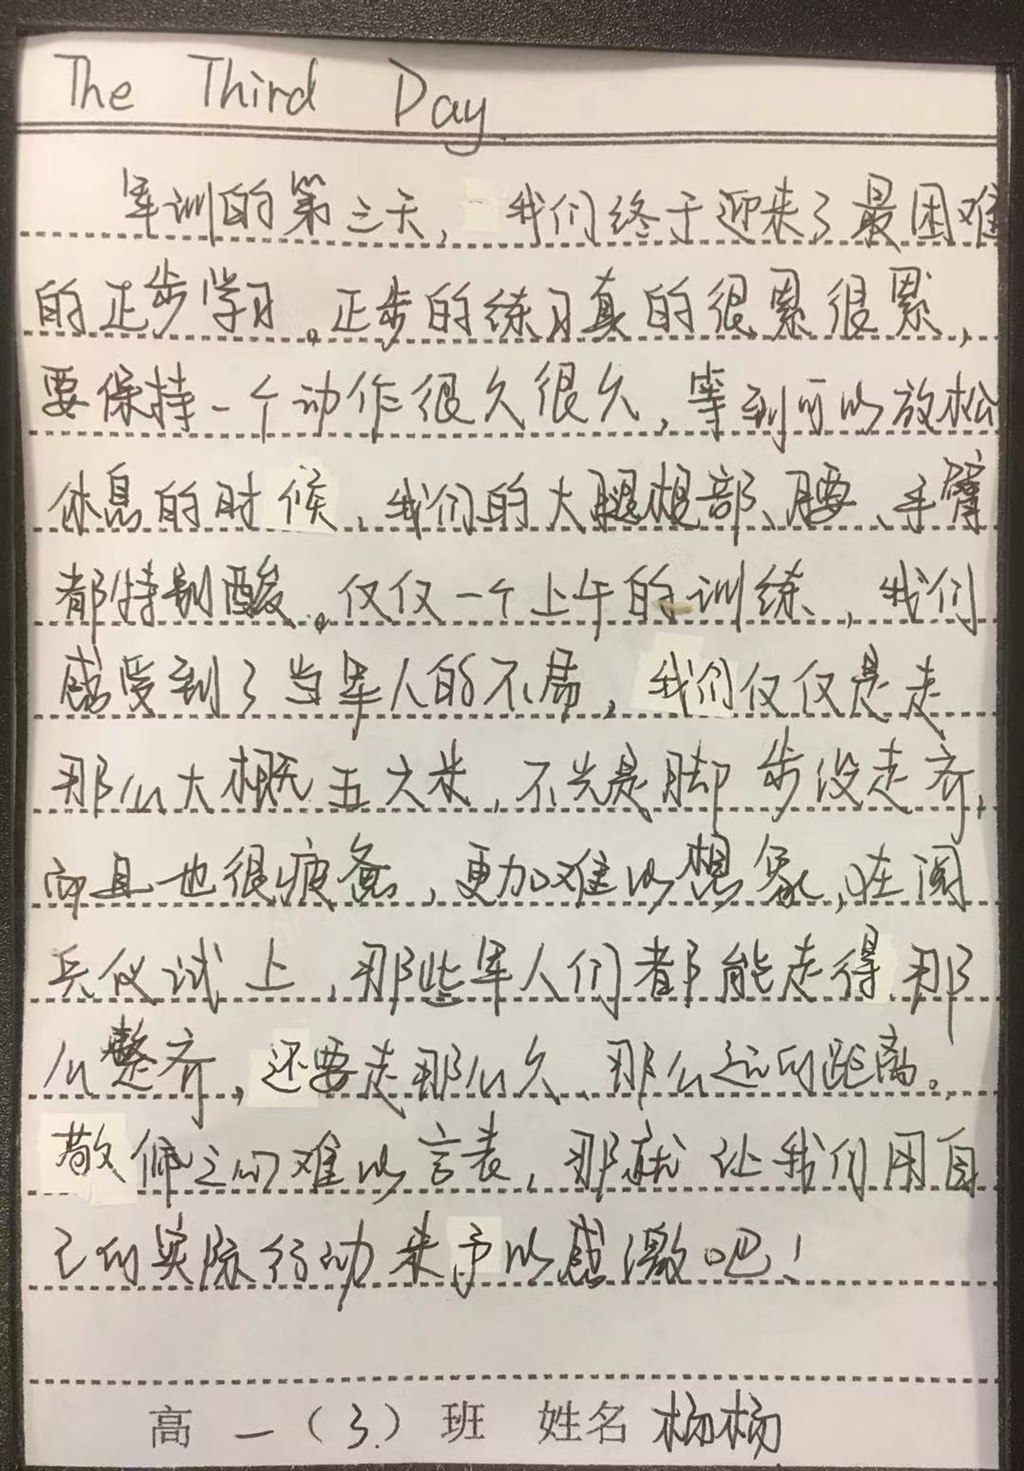 The Third Day.
军训的第三天，我们终于迎来了最困难
的正步学习。正步的练习真的很累很累，
要保持一个动作很久很久，等到可以放松
休息的时候，我们的大腿根部、腰、手臂
都特别酸。仅仅一个上午的训练，我们
感受到了当军人的不易，我们仅仅是走
那么大概五六米，不光是脚步没走齐，
而且也很疲惫，更加难以想象，在阅
兵仪试上，那些军人们都能走得那
么整齐，还要走那么久、那么远的距离。
敬佩之心难以言表，那就让我们用自
己的实际行动来予以感激吧！
高一（3.）班 姓名 杨杨